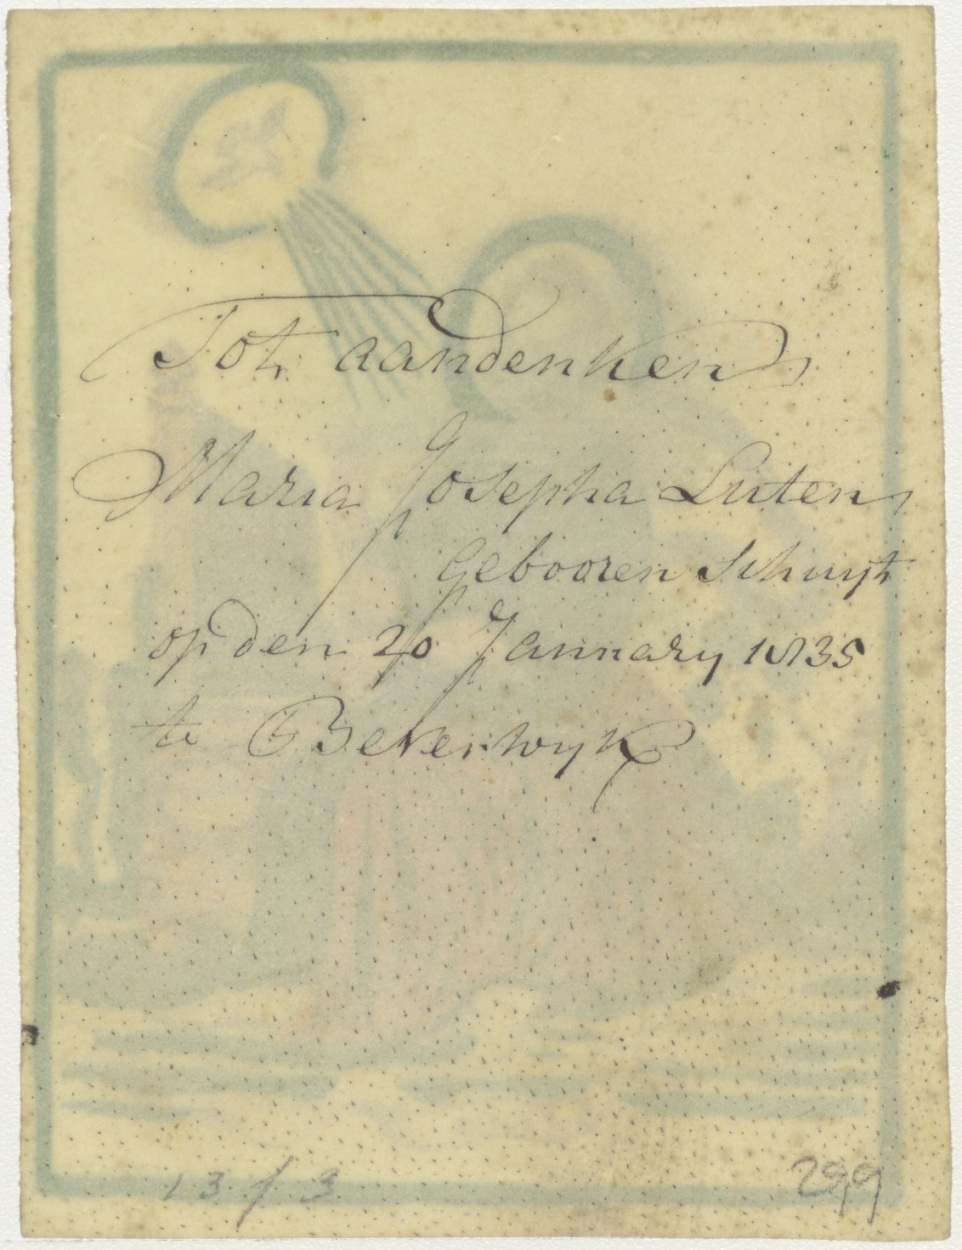 Tot aandenken
Maria Josepha Luten
Gebooren Schuyt
op den 20 January 1835
te Beverwyk
13/3 299